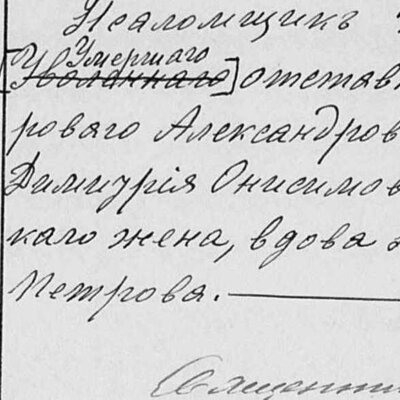 Псаломщикъ
Умершаго
[Уволеннаго] отстав
роваго Александров
Димитрія Онисимов
каго жена, вдова
Петрова.
Священни